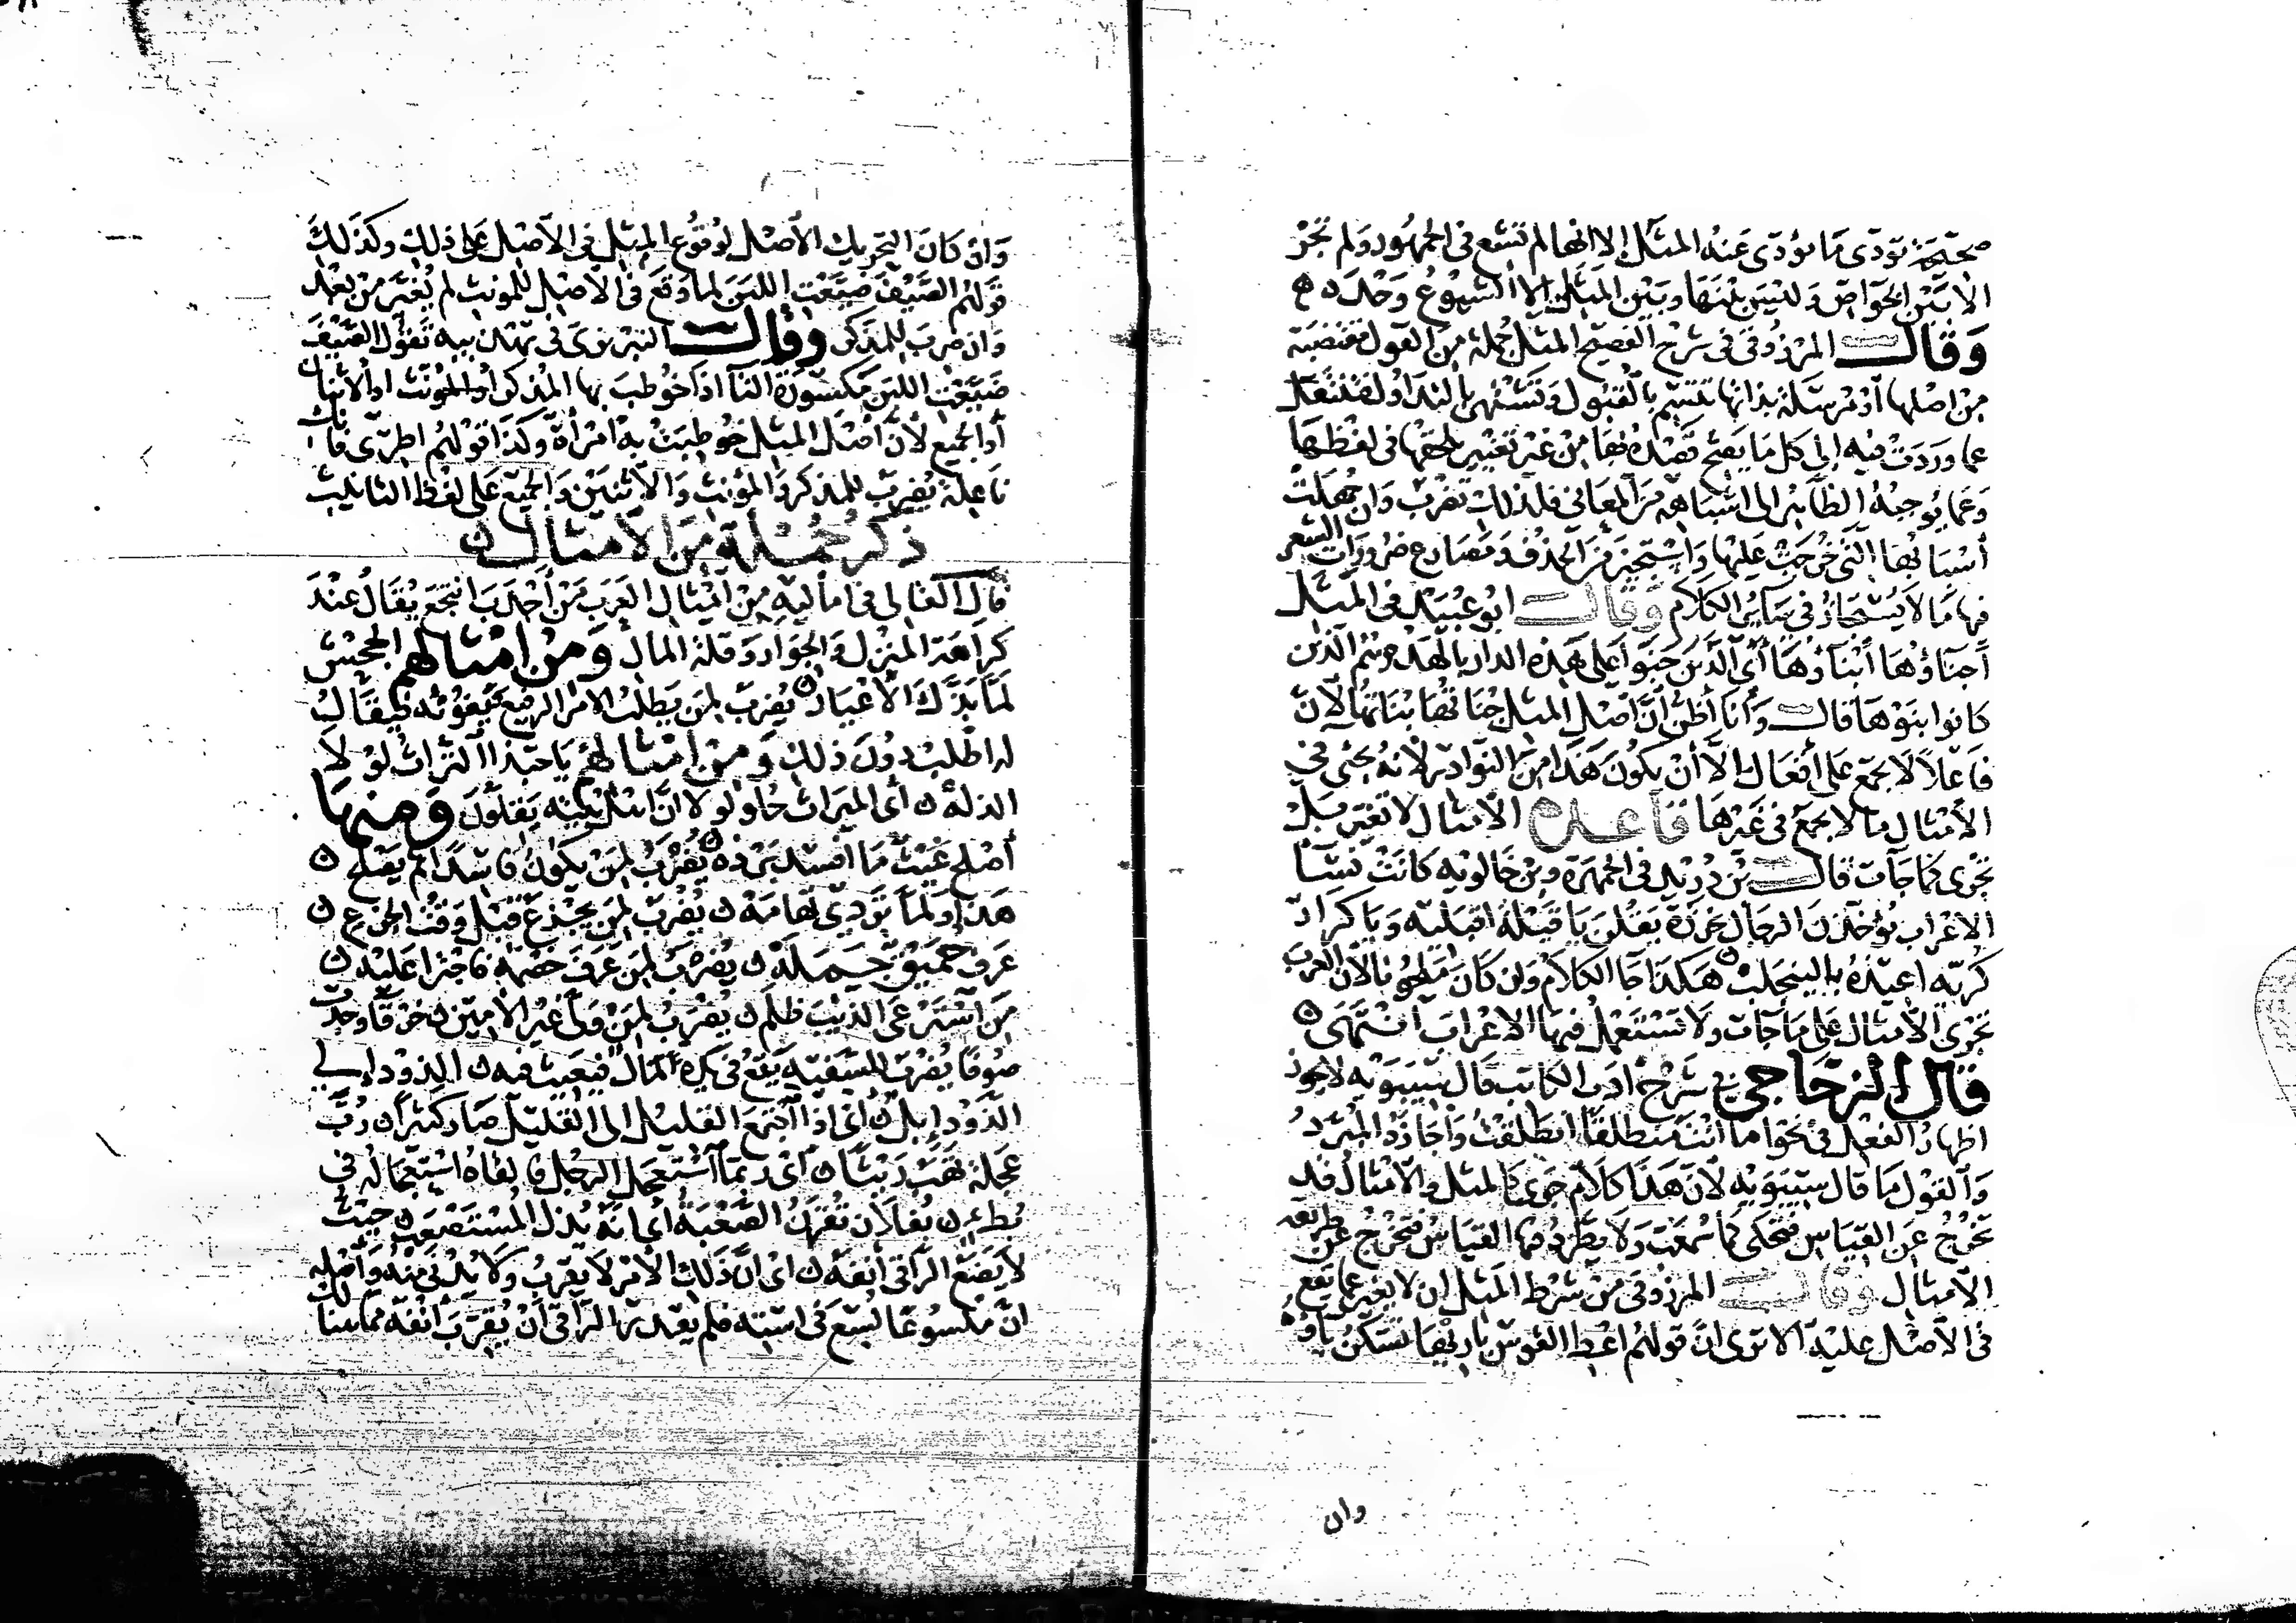 صحيحة تؤدى ما يؤدى عنه المثل الا انها لم تشع فى الجمهور ولم تجر
الا بين الخواص وليس بينها وبين المثل الا الشيوع وحده
وقال المرزوقى فى شرح الفصيح المثل جملة من القول مقتضبة
من اصلها او مرسلة بذاتها تتسم بالقبول وتشتهر بالتداول فتنتقل
عما وردت فيه الى كل ما يصح قصده بها من غير تغيير يلحقها فى لفظها
وعما يوجبه الظاهر الى اشباهه من المعانى فلذلك تضرب وان جهلت
أسبابها التى خرجت عليها واستجيز من الحذف ومضارع ضرورات الشعر
فيها ما لا يستجاز فى سائر الكلام وقال ابو عبيد فى المثل
أجناؤها أبناؤها أى الذين جنوا على هذه الدار بالهدم هم الذين
كانوا بنوها قال وأنا أظن أن أصل المثل جناتها بناتها لأن
فاعلا لا يجمع على أفعال الا أن يكون هذا من النوادر لأنه يجئ في
الأمثال ما لا يجمع فى غيرها قاعدة الأمثال لا تغير بل
تجرى كما جآت قال بن دريد فى الجمهرة وبن خالويه كانت نسآ
الاعراب يؤخذن الرجال بخرزة يقلن يا قبلة اقبليه ويا كرار
كريه أعيذه بالينجلب هكذا جا الكلام وان كان ملحونا لأن العرب
تجرى الأمثال على ما جآت ولا تستعمل فيها الاعراب انتهى
قال الزجاجى فى شرح ادب الكاتب قال سيبويه لا يجوز
اظهار الفعل فى نحو اما أنت منطلقا انطلقت وأجازه المبرد
والقول ما قال سيبويه لأن هذا كلام جرى كالمثل والأمثال قد
تخرج عن القياس فتحكى كما سمعت ولا يطرد فيها القياس فتخرج عن طريقة
الأمثال وقال المرزوقى من شرط المثل ان لا يغير عما يقع
فى الأصل عليه الا ترى ان قولهم اعط القوس باريها تسكن ياؤه
وان
وان كان التحريك الأصل لوقوع المثل فى الأصل على ذلك وكذلك
قولهم الصيف ضيعت اللبن لما وقع فى الأصل للمونث لم يغير من بعد
وان ضرب للمذكر وقال التبريزى فى تهذيبه تقول الصيف
ضيعت اللبن مكسورة التآ اذا خوطب بها المذكر أو المؤنث او الاثنان
أو الجميع لأن أصل المثل خوطبت به امرأة وكذا قولهم اطرى فانك
ناعلة يضرب للمذكر والمؤنث والأثنين والجمع على لفظ التانيث
ذكر جملة من الأمثال
قال القالى فى أماليه من امثال العرب من أجدب انتجع يقال عند
كراهة المنزل والجوار وقلة المال ومن امثالهم الجحش
لما بذك الأعيار يضرب لمن يطلب الامر الرفيع فيفوته فيقال
له اطلب دون ذلك ومن امثالهم يا حبذا التراث لولا
الذلة أى الميراث حلو لولا ان اهل بيته يقلون ومنها
أصلح غيث ما أفسد برده يضرب لمن يكون فاسدا ثم يصلح
هذا ولما تردى تهامة يضرب لمن يجزع قبل وقت الجزع
عرف حميق جمله يضرب لمن عرف خصمه فاجترا عليه
من استرعى الذئب ظلم يضرب لمن ولى غير الأمين خرقا وجدت
صوفا يضرب للسفيه يقع فى يده المال فيعيث فيه الذود الى
الذود إبل أى اذا اجتمع القليل الى القليل صار كثيرا رب
عجلة تهب ريثا أى ربما استعجل الرجل فالقاه استعجاله فى
بطئ بفلان تقرن الصعبة أى انه يذل المستصعب حيث
لا يضع الراقى أنفه اى ان ذلك الأمر لا يقرب ولا يدنى منه وأصله
ان ملسوعا لسع فى استه فلم يقدر الراقى أن يقرب أنفه مما هنالك